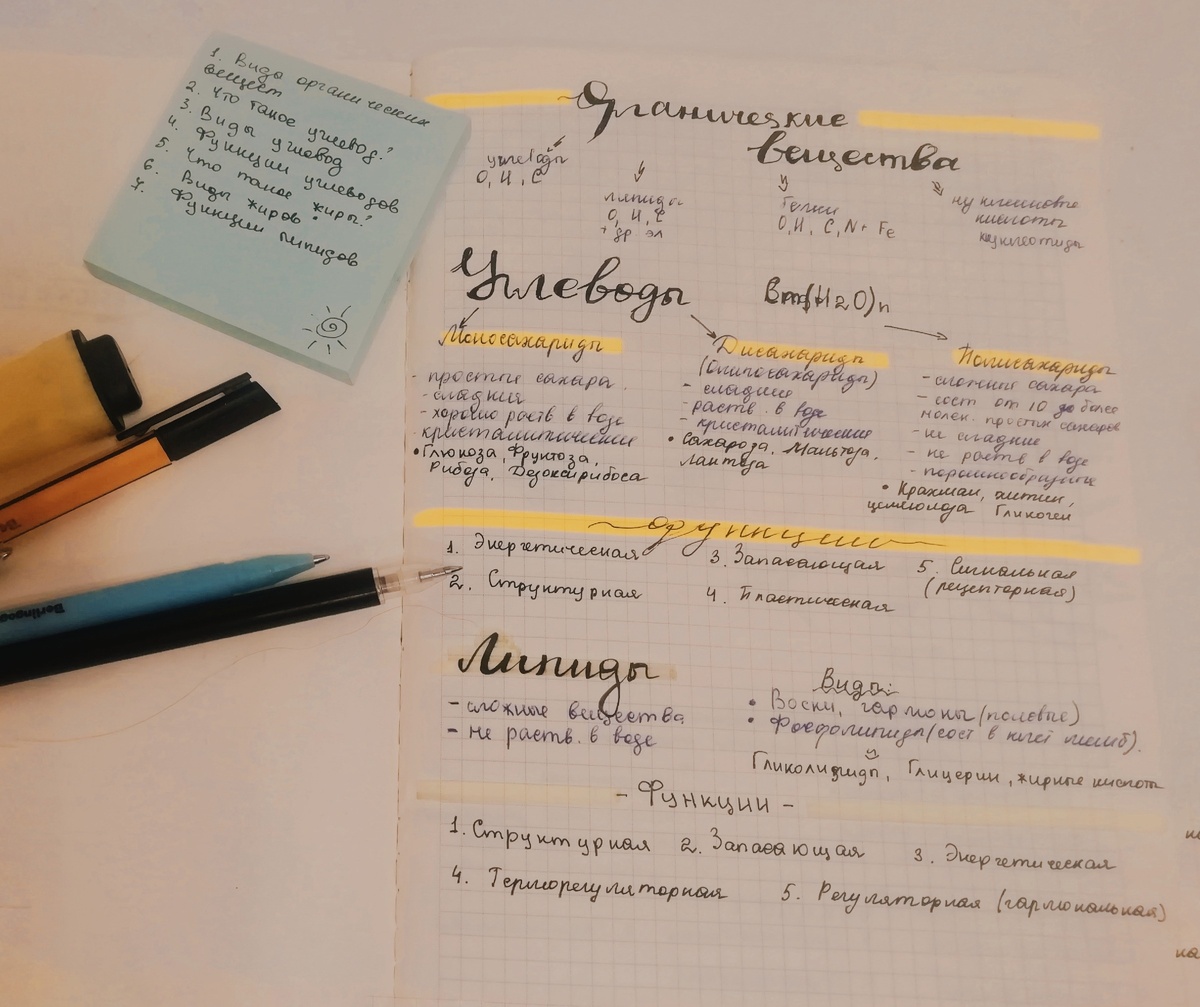 1. Виды органических
вещест
2. Что такое углевод?
3. Виды углевод
4. Функции углеводов
5. Что такое жиры?
6. Виды жиров.
7. Функции липидов
Органические
вещества
углеводы
O, H, C
липиды
O, H, C
+ др эл
Белки
O, H, C, N + Fe
нуклеиновые
кислоты
нуклеотиды
Углеводы
(H2O)n
Моносахариды
- простые сахара
- сладкие
- хорошо раств в воде
- кристаллические
• Глюкоза, Фруктоза,
Рибоза, Дезоксирибоса
Дисахариды
(Олигосахариды)
- сладкие
- раств. в воде
- кристаллические
• Сахароза, Мальтоза,
Лактоза
Полисахариды
- сложные сахара
- сост от 10 до более
молек. простых сахаров
- не сладкие
- не раств в воде
- порошкообразные
• Крахмал, хитин,
целлюлоза Гликоген
функции
1. Энергетическая
2. Структурная
3. Запасающая
4. Пластическая
5. Сигнальная
(рецепторная)
Липиды
- сложные вещества
- не раств. в воде
Виды:
• Воски, гармоны (половые)
• Фосфолипиды (сост в клет мемб).
Гликолипиды, Глицерин, жирные кислоты
- Функции -
1. Структурная 2. Запасающая 3. Энергетическая
4. Терморегуляторная 5. Регуляторная (гармональная)